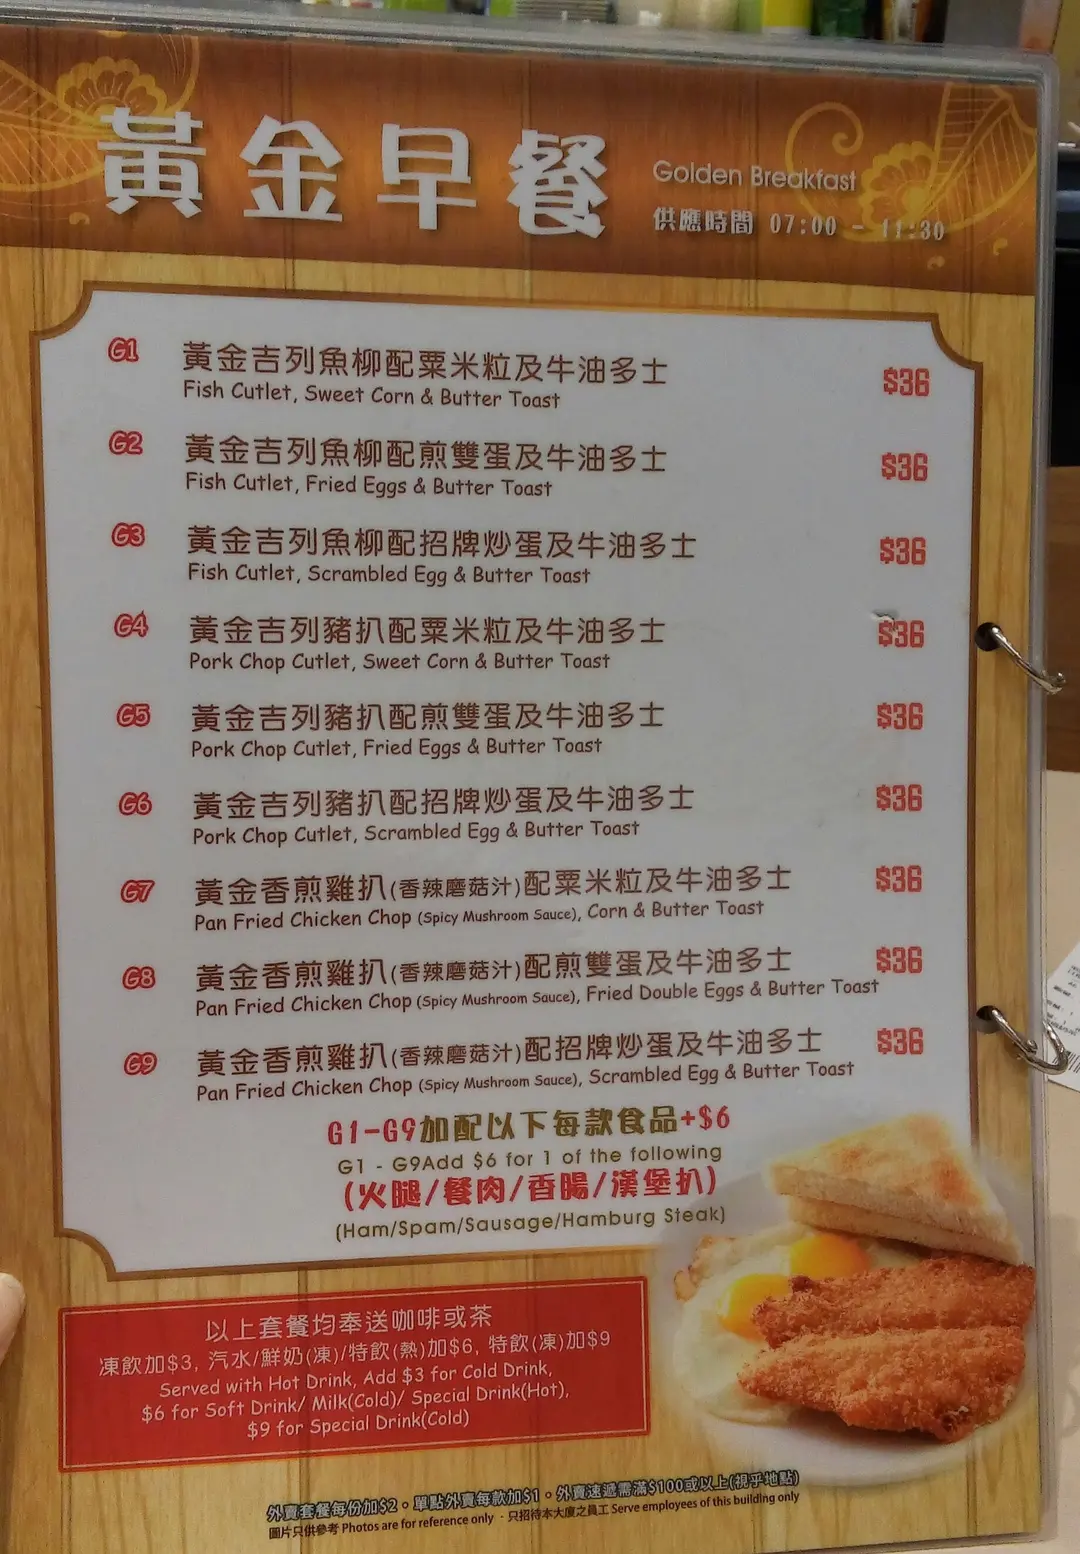 黃金早餐
Golden Breakfast
供應時間 07:00 - 11:30
G1 黃金吉列魚柳配粟米粒及牛油多士 $36
Fish Cutlet, Sweet Corn & Butter Toast
G2 黃金吉列魚柳配煎雙蛋及牛油多士 $36
Fish Cutlet, Fried Eggs & Butter Toast
G3 黃金吉列魚柳配招牌炒蛋及牛油多士 $36
Fish Cutlet, Scrambled Egg & Butter Toast
G4 黃金吉列豬扒配粟米粒及牛油多士 $36
Pork Chop Cutlet, Sweet Corn & Butter Toast
G5 黃金吉列豬扒配煎雙蛋及牛油多士 $36
Pork Chop Cutlet, Fried Eggs & Butter Toast
G6 黃金吉列豬扒配招牌炒蛋及牛油多士 $36
Pork Chop Cutlet, Scrambled Egg & Butter Toast
G7 黃金香煎雞扒(香辣磨菇汁)配粟米粒及牛油多士 $36
Pan Fried Chicken Chop (Spicy Mushroom Sauce), Corn & Butter Toast
G8 黃金香煎雞扒(香辣磨菇汁)配煎雙蛋及牛油多士 $36
Pan Fried Chicken Chop (Spicy Mushroom Sauce), Fried Double Eggs & Butter Toast
G9 黃金香煎雞扒(香辣磨菇汁)配招牌炒蛋及牛油多士 $36
Pan Fried Chicken Chop (Spicy Mushroom Sauce), Scrambled Egg & Butter Toast
G1-G9加配以下每款食品+$6
G1 - G9Add $6 for 1 of the following
(火腿/餐肉/香腸/漢堡扒)
(Ham/Spam/Sausage/Hamburg Steak)
以上套餐均奉送咖啡或茶
凍飲加$3, 汽水/鮮奶(凍)/特飲(熱)加$6, 特飲(凍)加$9
Served with Hot Drink, Add $3 for Cold Drink,
$6 for Soft Drink/ Milk(Cold)/ Special Drink(Hot),
$9 for Special Drink(Cold)
外賣套餐每份加$2。單點外賣每款加$1。外賣速遞需滿$100或以上(視乎地點)
圖片只供參考 Photos are for reference only · 只招待本大廈之員工 Serve employees of this building only